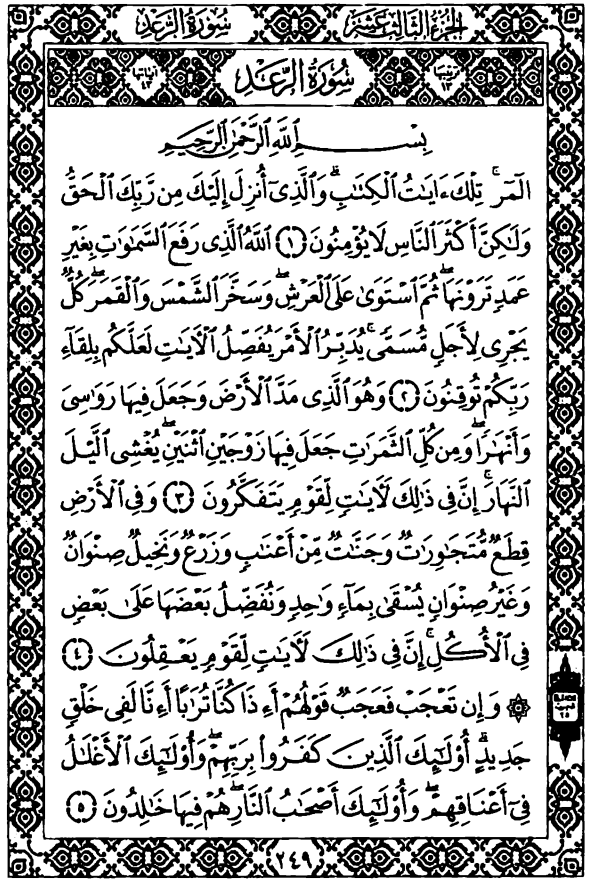 الجزء الثالث عشر سورة الرعد
ترتيبها ١٣ سورة الرعد آياتها ٤٣
بِسْمِ ٱللَّهِ ٱلرَّحْمَٰنِ ٱلرَّحِيمِ
الٓمٓر ۚ تِلْكَ ءَايَٰتُ ٱلْكِتَٰبِ ۗ وَٱلَّذِىٓ أُنزِلَ إِلَيْكَ مِن رَّبِّكَ ٱلْحَقُّ
وَلَٰكِنَّ أَكْثَرَ ٱلنَّاسِ لَا يُؤْمِنُونَ ﴿١﴾ ٱللَّهُ ٱلَّذِى رَفَعَ ٱلسَّمَٰوَٰتِ بِغَيْرِ
عَمَدٍ تَرَوْنَهَا ۖ ثُمَّ ٱسْتَوَىٰ عَلَى ٱلْعَرْشِ ۖ وَسَخَّرَ ٱلشَّمْسَ وَٱلْقَمَرَ ۖ كُلٌّ
يَجْرِى لِأَجَلٍ مُّسَمًّى ۚ يُدَبِّرُ ٱلْأَمْرَ يُفَصِّلُ ٱلْءَايَٰتِ لَعَلَّكُم بِلِقَآءِ
رَبِّكُمْ تُوقِنُونَ ﴿٢﴾ وَهُوَ ٱلَّذِى مَدَّ ٱلْأَرْضَ وَجَعَلَ فِيهَا رَوَٰسِىَ
وَأَنْهَٰرًا ۖ وَمِن كُلِّ ٱلثَّمَرَٰتِ جَعَلَ فِيهَا زَوْجَيْنِ ٱثْنَيْنِ ۖ يُغْشِى ٱلَّيْلَ
ٱلنَّهَارَ ۚ إِنَّ فِى ذَٰلِكَ لَءَايَٰتٍ لِّقَوْمٍ يَتَفَكَّرُونَ ﴿٣﴾ وَفِى ٱلْأَرْضِ
قِطَعٌ مُّتَجَٰوِرَٰتٌ وَجَنَّٰتٌ مِّنْ أَعْنَٰبٍ وَزَرْعٌ وَنَخِيلٌ صِنْوَانٌ
وَغَيْرُ صِنْوَانٍ يُسْقَىٰ بِمَآءٍ وَٰحِدٍ وَنُفَضِّلُ بَعْضَهَا عَلَىٰ بَعْضٍ
فِى ٱلْأُكُلِ ۚ إِنَّ فِى ذَٰلِكَ لَءَايَٰتٍ لِّقَوْمٍ يَعْقِلُونَ ﴿٤﴾
۞ وَإِن تَعْجَبْ فَعَجَبٌ قَوْلُهُمْ أَءِذَا كُنَّا تُرَٰبًا أَءِنَّا لَفِى خَلْقٍ
جَدِيدٍ ۗ أُو۟لَٰٓئِكَ ٱلَّذِينَ كَفَرُوا۟ بِرَبِّهِمْ ۖ وَأُو۟لَٰٓئِكَ ٱلْأَغْلَٰلُ
فِىٓ أَعْنَاقِهِمْ ۖ وَأُو۟لَٰٓئِكَ أَصْحَٰبُ ٱلنَّارِ ۖ هُمْ فِيهَا خَٰلِدُونَ ﴿٥﴾
الحزب ٢٥
٢٤٩